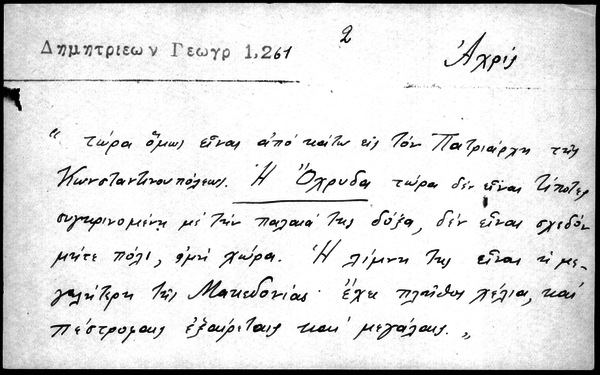 Δημητριεων Γεωγρ 1,261
2
Ἀχρίς
"τώρα ὅμως εἶναι ἀπό κάτω εἰς τόν Πατριάρχη τῆς
Κωνσταντινουπόλεως. Ἡ Ὄχρυδα τώρα δέν εἶναι τίποτες
συγκρινομένη μέ τήν παλαιά της δόξα, δέν εἶναι σχεδόν
μήτε πόλι, ἀμή χώρα. Ἡ λίμνη της εἶναι ἡ με-
γαλήτερη τῆς Μακεδονίας· ἔχει πλῆθος χέλια, καί
πέστροφαις ἐξαίρεταις καί μεγάλαις."